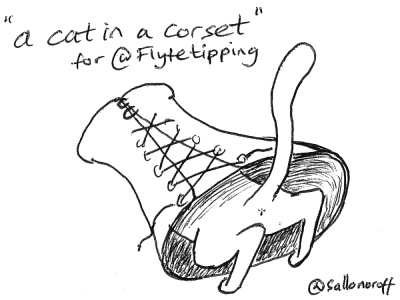 "a cat in a corset"
for @Flytetipping
@sallonoroff